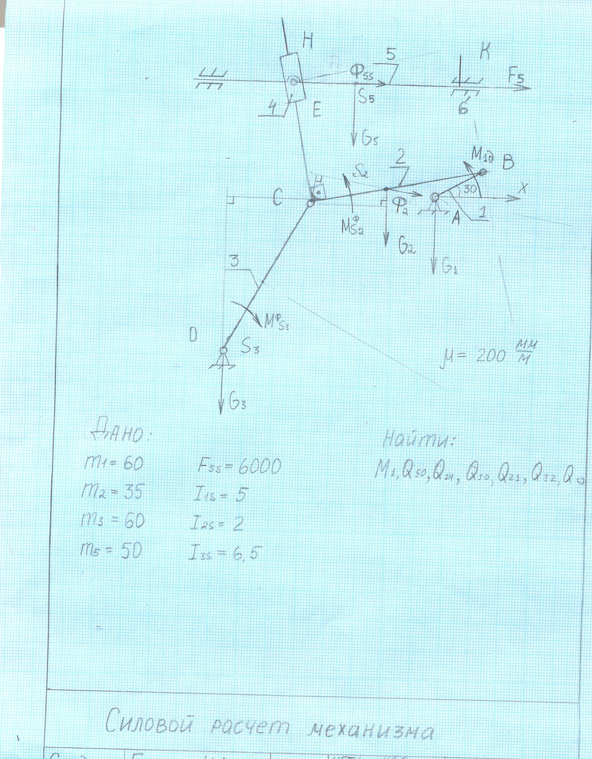 H
K
5
Ф5S
F5
S5
6
4
E
G5
M1д
B
S2
2
30
X
C
MФS2
Ф2
A
1
G2
G1
3
MФS3
D
S3
G3
μ = 200 мм/м
Дано:
m1 = 60
m2 = 35
m3 = 60
m5 = 50
F5S = 6000
I1S = 5
I2S = 2
I3S = 6,5
Найти:
M1, Q50, Q24, Q30, Q21, Q32,
Силовой расчет механизма